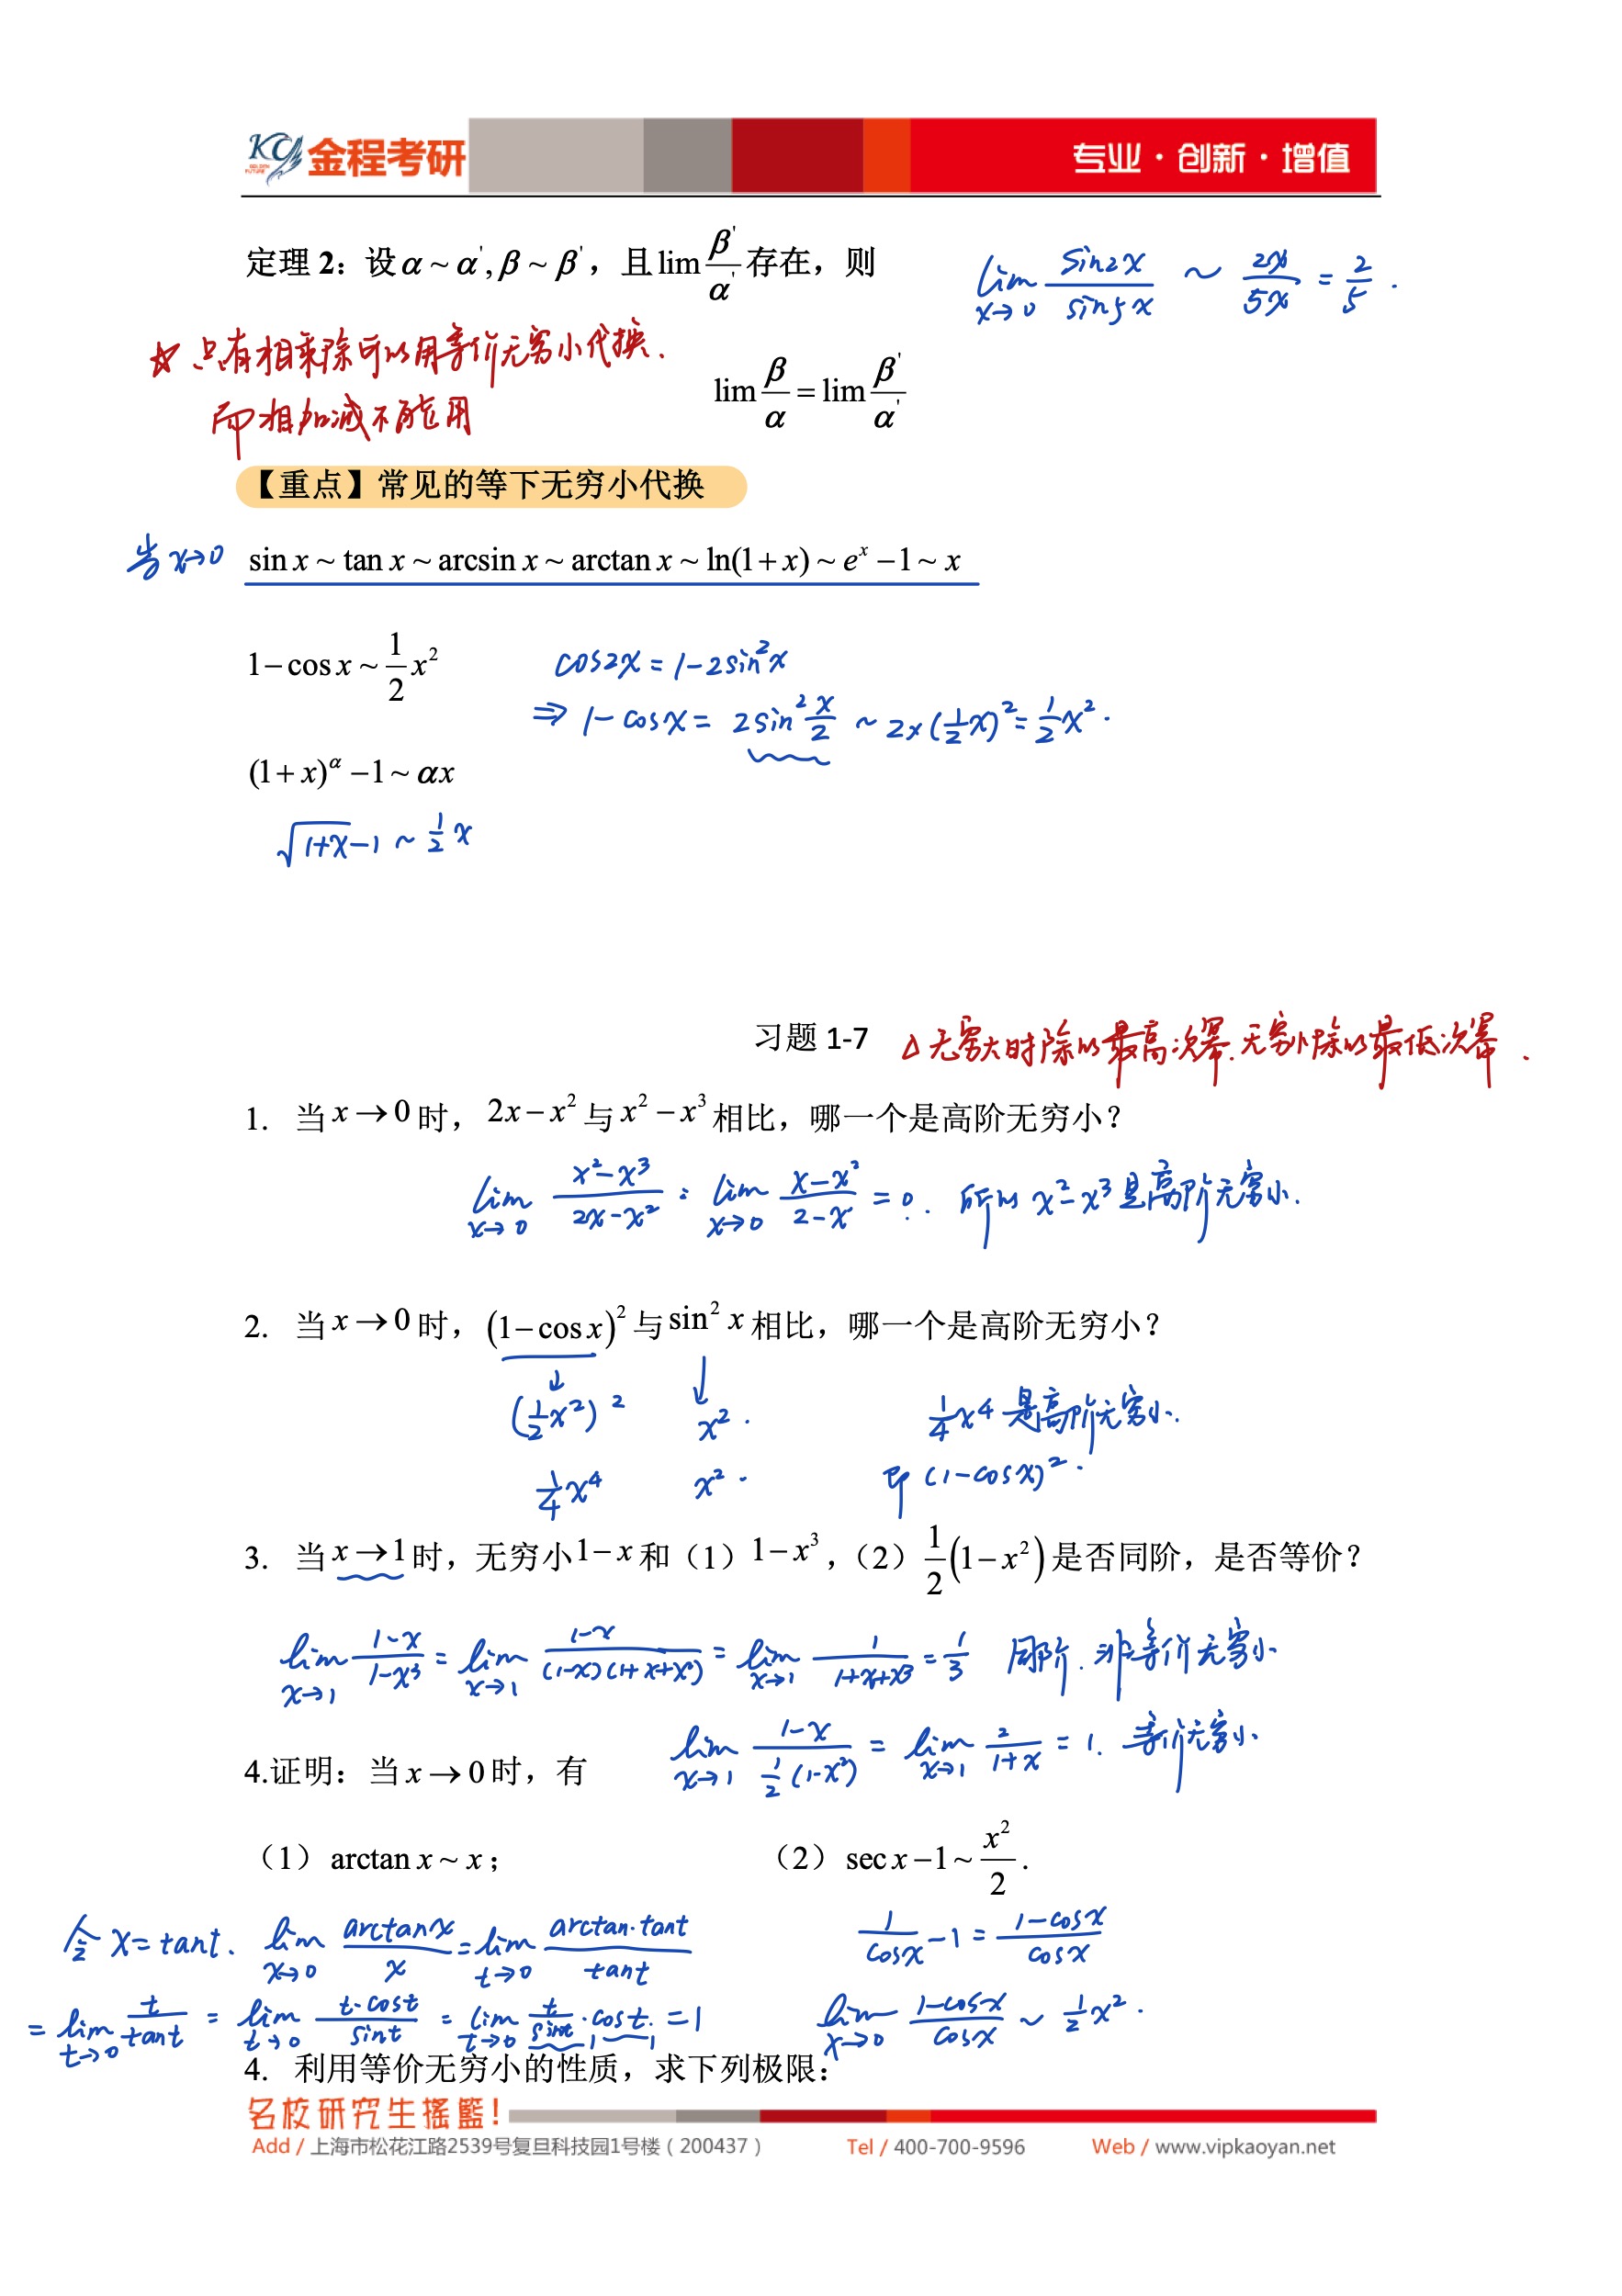 KC GOLDEN FUTURE 金程考研 专业·创新·增值
定理 2：设 α ~ α', β ~ β'，且 lim β'/α' 存在，则
lim x→0 sin2x/sin5x ~ 2x/5x = 2/5 .
☆ 只有相乘除可以用等价无穷小代换.
而相加减不能用
lim β/α = lim β'/α'
【重点】常见的等下无穷小代换
当 x→0 sin x ~ tan x ~ arcsin x ~ arctan x ~ ln(1+x) ~ eˣ −1 ~ x
1−cos x ~ 1/2 x²
cos2x = 1−2sin²x
⇒ 1−cosx = 2sin² x/2 ~ 2×(1/2 x)² = 1/2 x² .
(1+x)^α −1 ~ αx
√(1+x) −1 ~ 1/2 x
习题 1-7 △无穷大时除以最高次幂.无穷小除以最低次幂.
1. 当 x→0 时， 2x−x² 与 x²−x³ 相比，哪一个是高阶无穷小？
lim x→0 (x²−x³)/(2x−x²) = lim x→0 (x−x²)/(2−x) = 0. 所以 x²−x³ 是高阶无穷小.
2. 当 x→0 时， (1−cos x)² 与 sin² x 相比，哪一个是高阶无穷小？
↓ ↓
(1/2 x²)² x² .
1/4 x⁴ 是高阶无穷小.
1/4 x⁴ x² .
即 (1−cosx)² .
3. 当 x→1 时，无穷小 1−x 和（1） 1−x³ ，（2） 1/2 (1−x²) 是否同阶，是否等价？
lim x→1 (1−x)/(1−x³) = lim x→1 (1−x)/((1−x)(1+x+x²)) = lim x→1 1/(1+x+x³) = 1/3 同阶.非等价无穷小
lim x→1 (1−x)/(1/2 (1−x²)) = lim x→1 2/(1+x) = 1. 等价无穷小.
4.证明：当 x→0 时，有
（1） arctan x ~ x ； （2） sec x −1 ~ x²/2 .
令 x = tant. lim x→0 arctanx/x = lim t→0 arctan·tant/tant
1/cosx −1 = (1−cosx)/cosx
= lim t→0 t/tant = lim t→0 t·cost/sint = lim t→0 t/sint · cost. = 1
1 1
lim x→0 (1−cosx)/cosx ~ 1/2 x² .
4. 利用等价无穷小的性质，求下列极限：
名校研究生摇篮！
Add / 上海市松花江路2539号复旦科技园1号楼（200437） Tel / 400-700-9596 Web / www.vipkaoyan.net